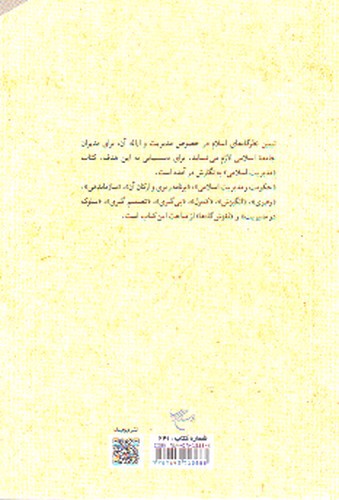 تبیین نظرگاه‌های اسلام در خصوص مدیریت و ارائه آن، برای مدیران
جامعهٔ اسلامی لازم می‌نماید. برای دستیابی به این هدف، کتاب
«مدیریت اسلامی» به نگارش در آمده است.
«حکومت و مدیریت اسلامی»، «برنامه‌ریزی و ارکان آن»، «سازماندهی»،
«رهبری»، «انگیزش»، «کنترل»، «پی‌گیری»، «تصمیم گیری»، «سلوک
در مدیریت» و «لغزش‌گاه‌ها» از مباحث این کتاب است.
شماره کتاب: ۶۴۱